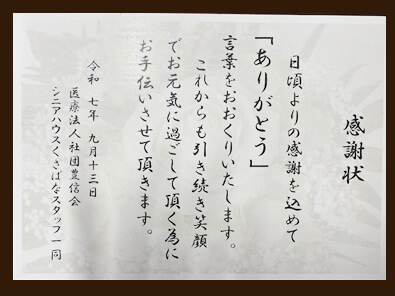 感謝状
日頃よりの感謝を込めて
「ありがとう」
言葉をおおくりいたします。
これからも引き続き笑顔
でお元気に過ごして頂く為に
お手伝いさせて頂きます。
令和 七年 九月十三日
医療法人社団豊信会
シニアハウスくさばなスタッフ一同